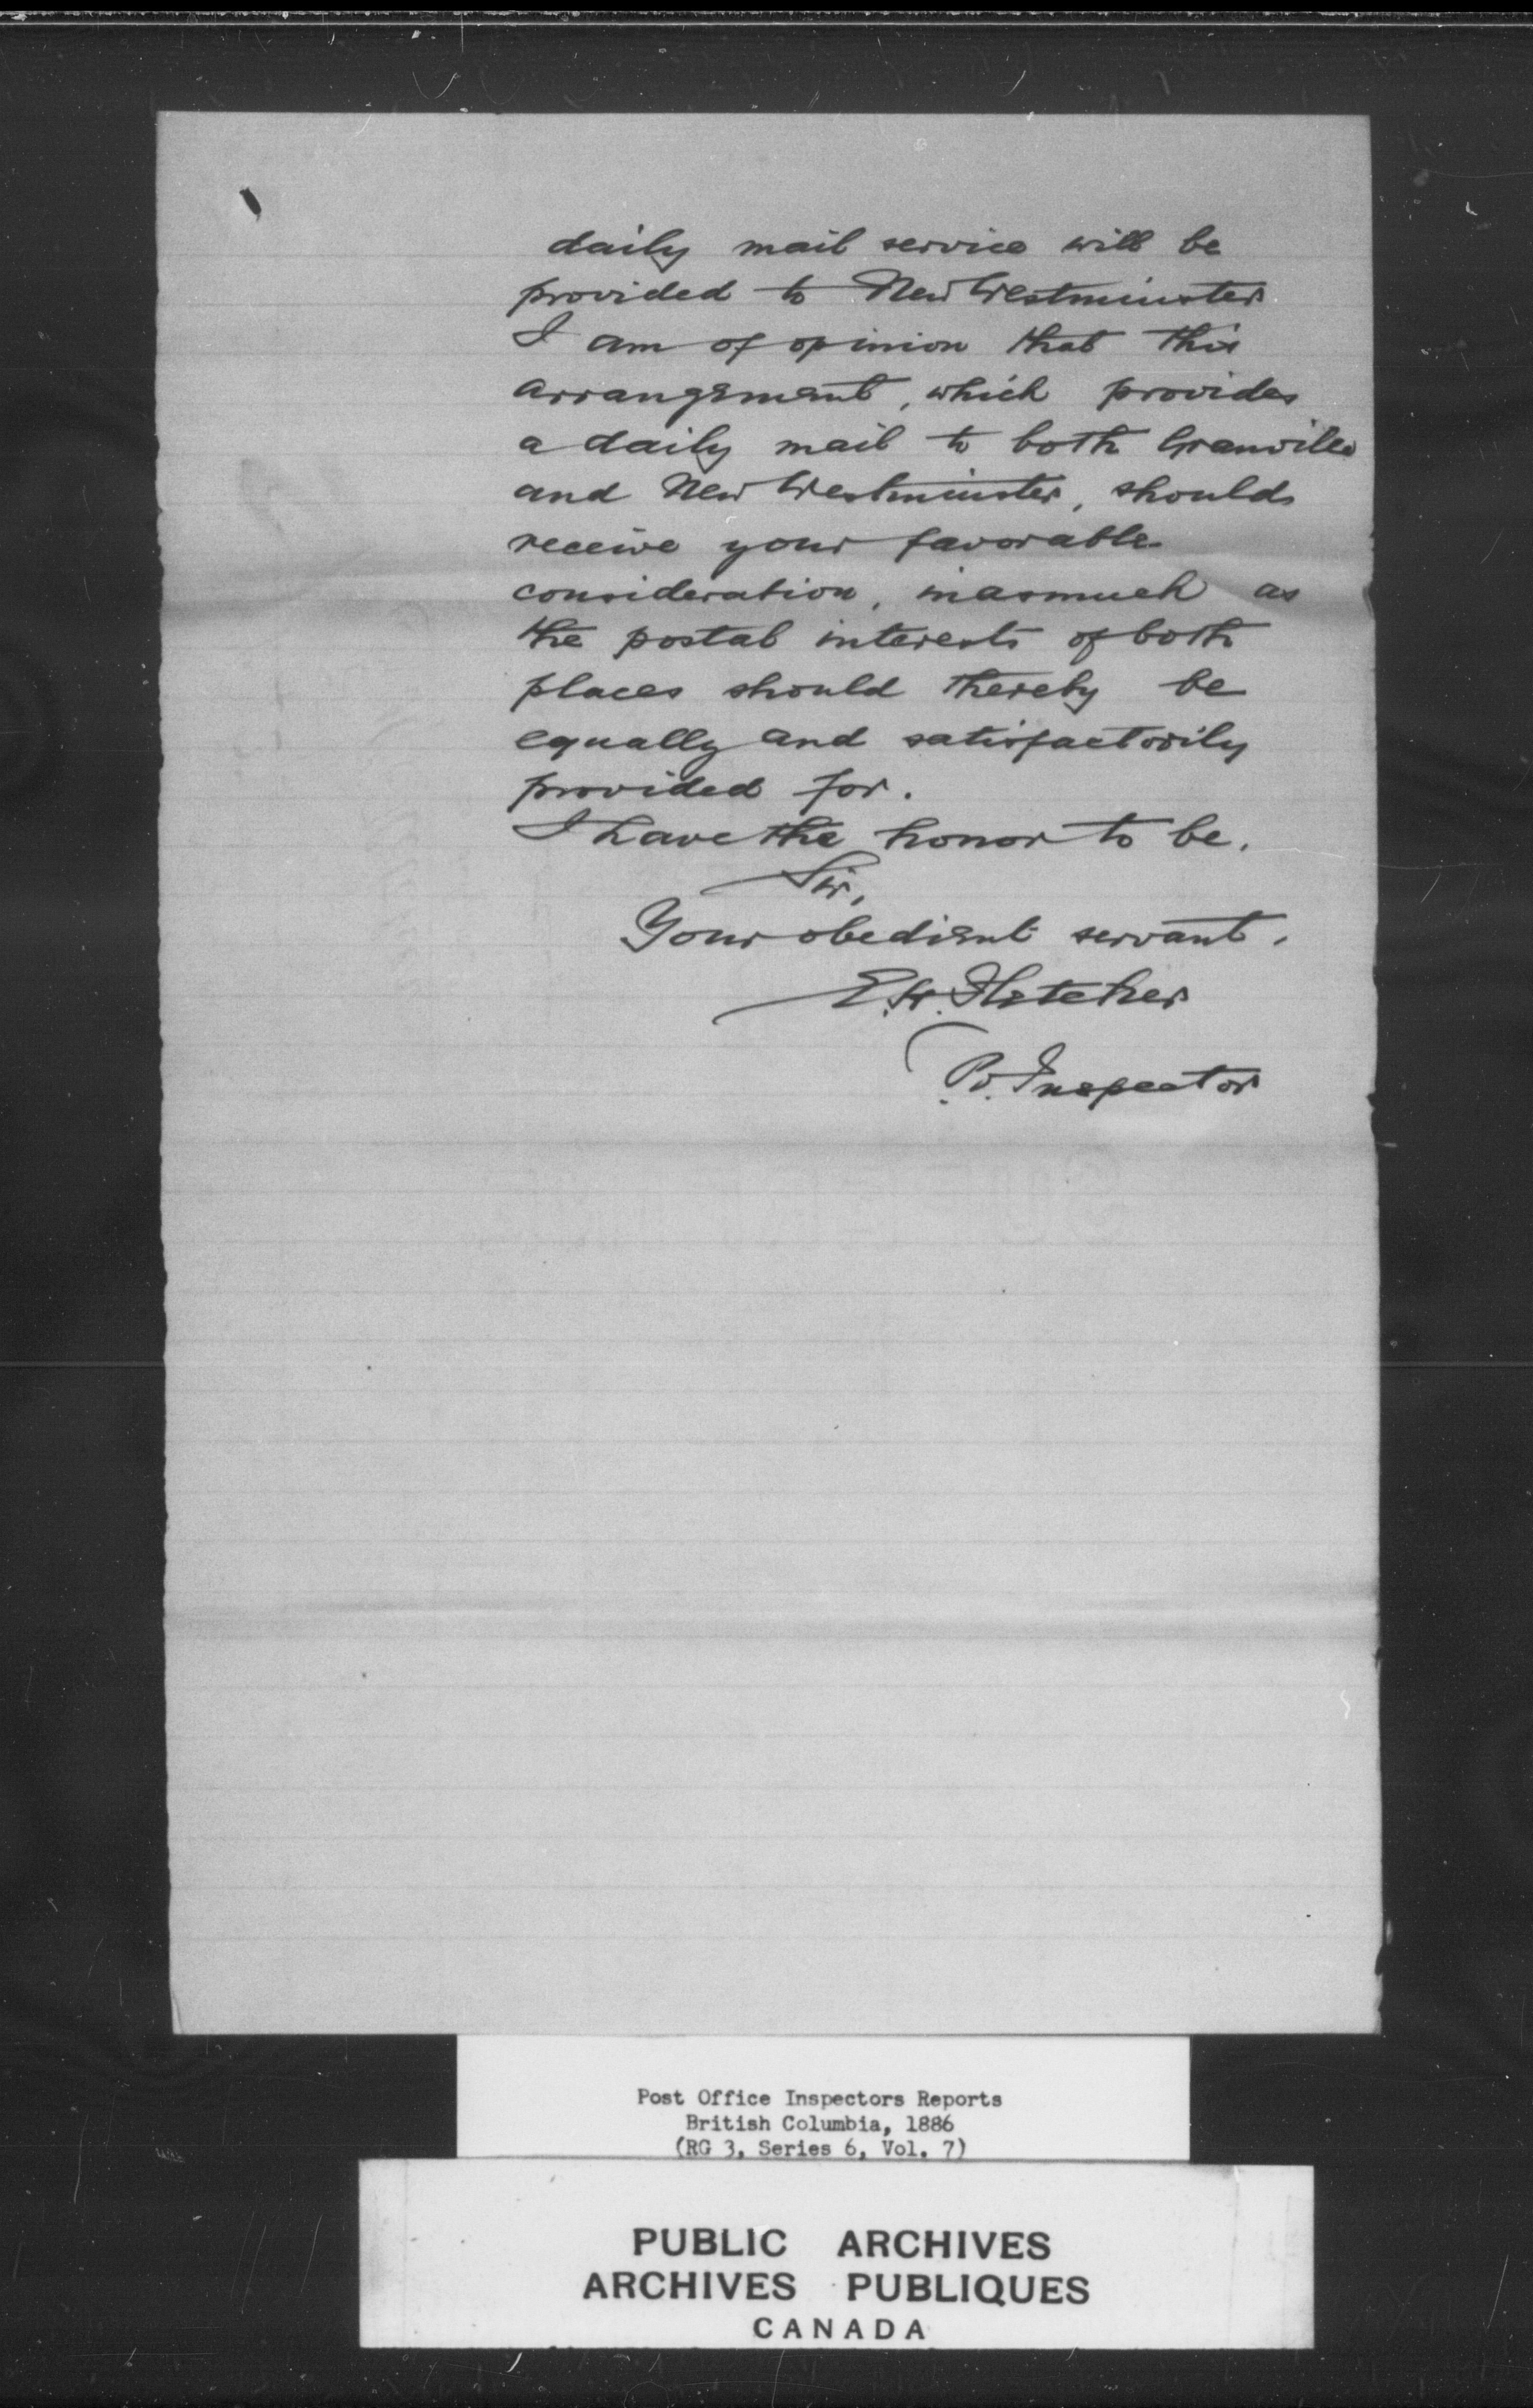 daily mail service will be
provided to New Westminster.
I am of opinion that this
arrangement, which provides
a daily mail to both Granville
and New Westminster, should
receive your favorable
consideration, inasmuch as
the postal interests of both
places should thereby be
equally and satisfactorily
provided for.
I have the honor to be,
Sir,
Your obedient servant.
E.H. Fletcher
P.O. Inspector
Post Office Inspectors Reports
British Columbia, 1886
(RG 3, Series 6, Vol. 7)
PUBLIC ARCHIVES
ARCHIVES PUBLIQUES
CANADA